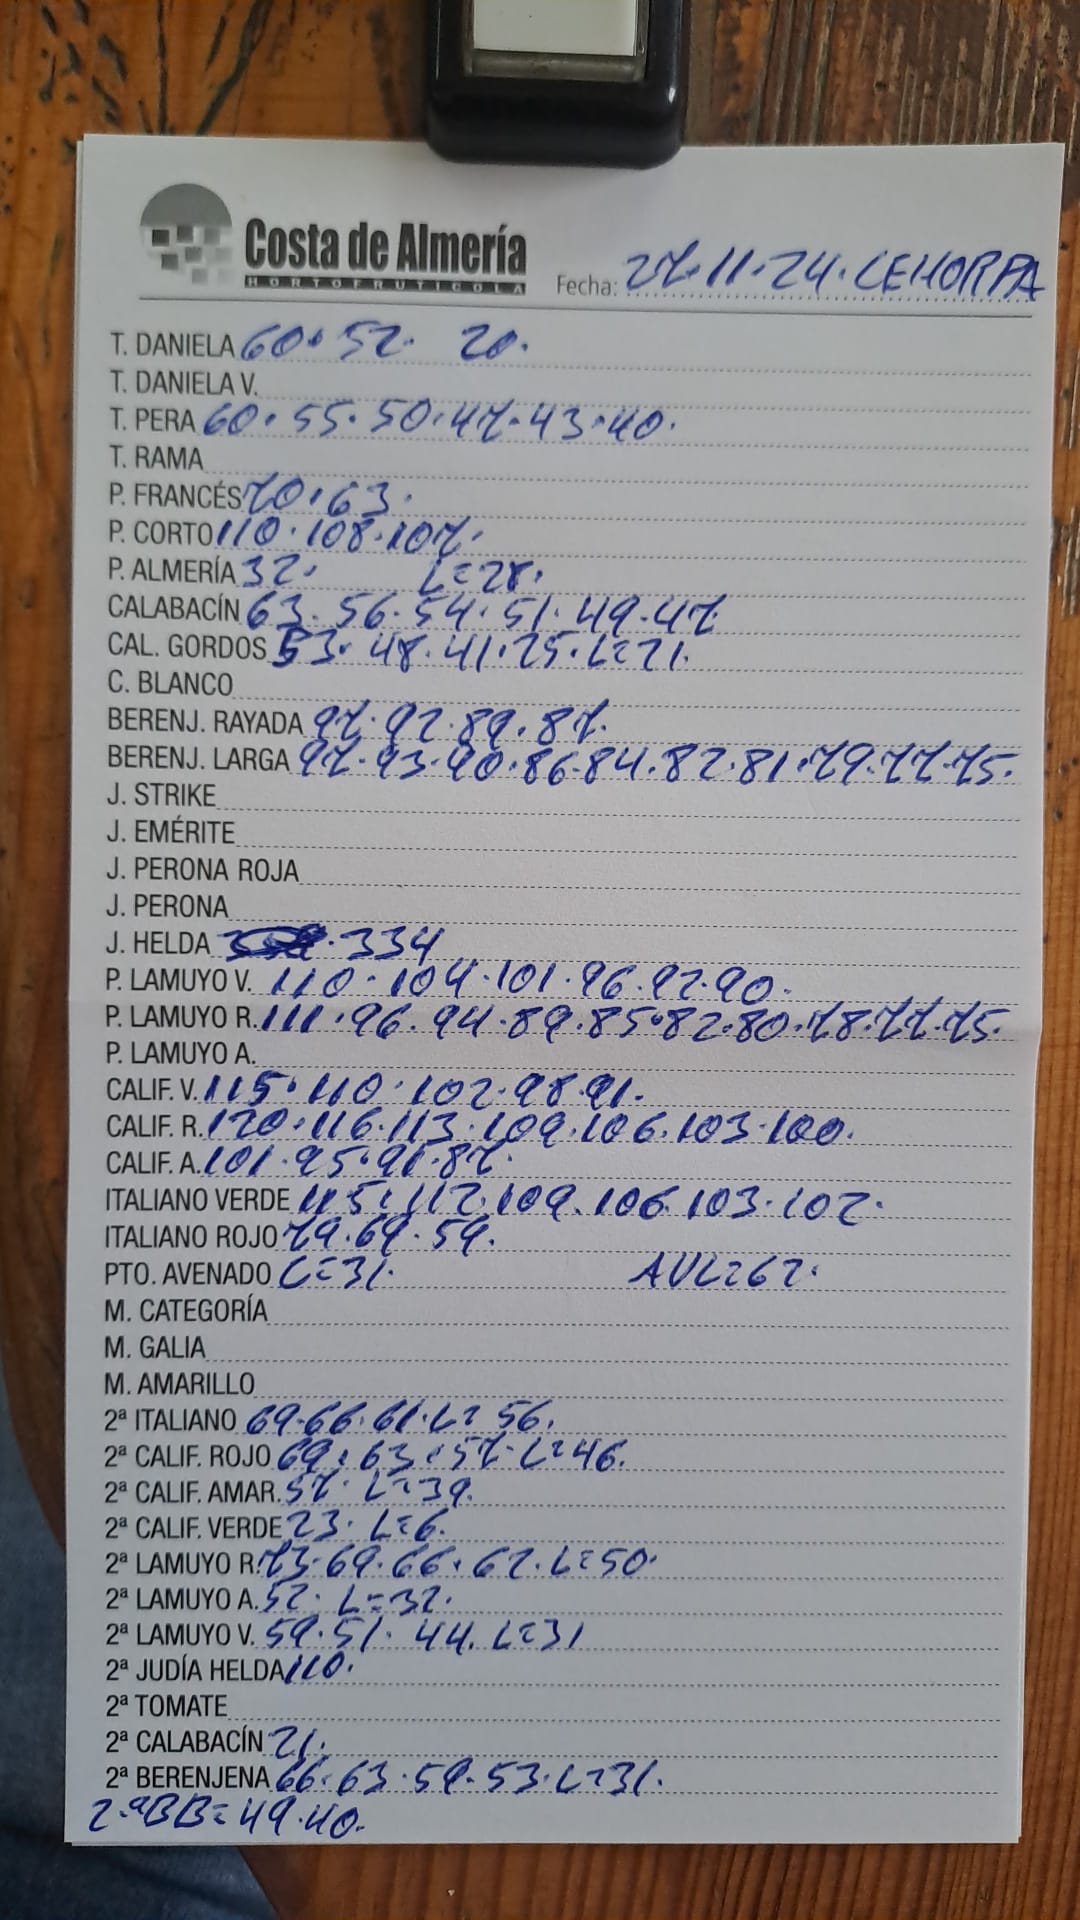 Costa de Almería
HORTOFRUTICOLA
Fecha: 27.11.24. CEHORPA
T. DANIELA 60. 52. 20.
T. DANIELA V.
T. PERA 60. 55. 50. 47. 43. 40.
T. RAMA
P. FRANCÉS 70. 63.
P. CORTO 110. 108. 107.
P. ALMERÍA 32. L=28.
CALABACÍN 63. 56. 54. 51. 49. 47
CAL. GORDOS 53. 48. 41. 25. L=21.
C. BLANCO
BERENJ. RAYADA 97. 92. 89. 87.
BERENJ. LARGA 97. 93. 90. 86. 84. 82. 81. 79. 77. 75.
J. STRIKE
J. EMÉRITE
J. PERONA ROJA
J. PERONA
J. HELDA 334
P. LAMUYO V. 110. 104. 101. 96. 92. 90.
P. LAMUYO R. 111. 96. 94. 89. 85. 82. 80. 78. 77. 75.
P. LAMUYO A.
CALIF. V. 115. 110. 102. 98. 91.
CALIF. R. 120. 116. 113. 109. 106. 103. 100.
CALIF. A. 101. 95. 91. 87.
ITALIANO VERDE 115. 112. 109. 106. 103. 102.
ITALIANO ROJO 79. 69. 59.
PTO. AVENADO L=31. AVL=62.
M. CATEGORÍA
M. GALIA
M. AMARILLO
2ª ITALIANO 69. 66. 61. L= 56.
2ª CALIF. ROJO 69. 63. 57. L=46.
2ª CALIF. AMAR. 57. L=39.
2ª CALIF. VERDE 23. L=6.
2ª LAMUYO R. 73. 69. 66. 62. L=50.
2ª LAMUYO A. 52. L=32.
2ª LAMUYO V. 59. 51. 44. L=31
2ª JUDÍA HELDA 110.
2ª TOMATE
2ª CALABACÍN 21.
2ª BERENJENA 66. 63. 59. 53. L=31.
2.ªBB= 49. 40.